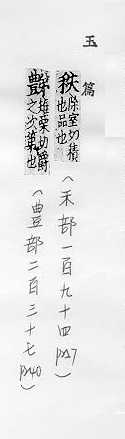 玉篇
秩除室切積
也品也
(禾部一百九十四
豑雉栗切爵
之次第也
(豊部二百三十七